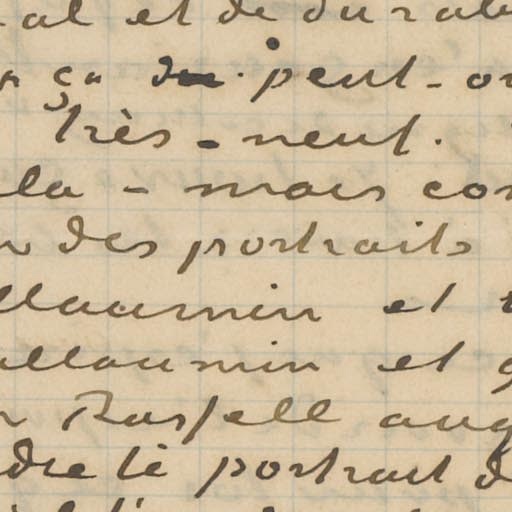 al et de durab
ça du peut-on
très-neuf.
la - mais com
des portraits
llaumin et
illaumin et
Russell auq
dre le portrait d